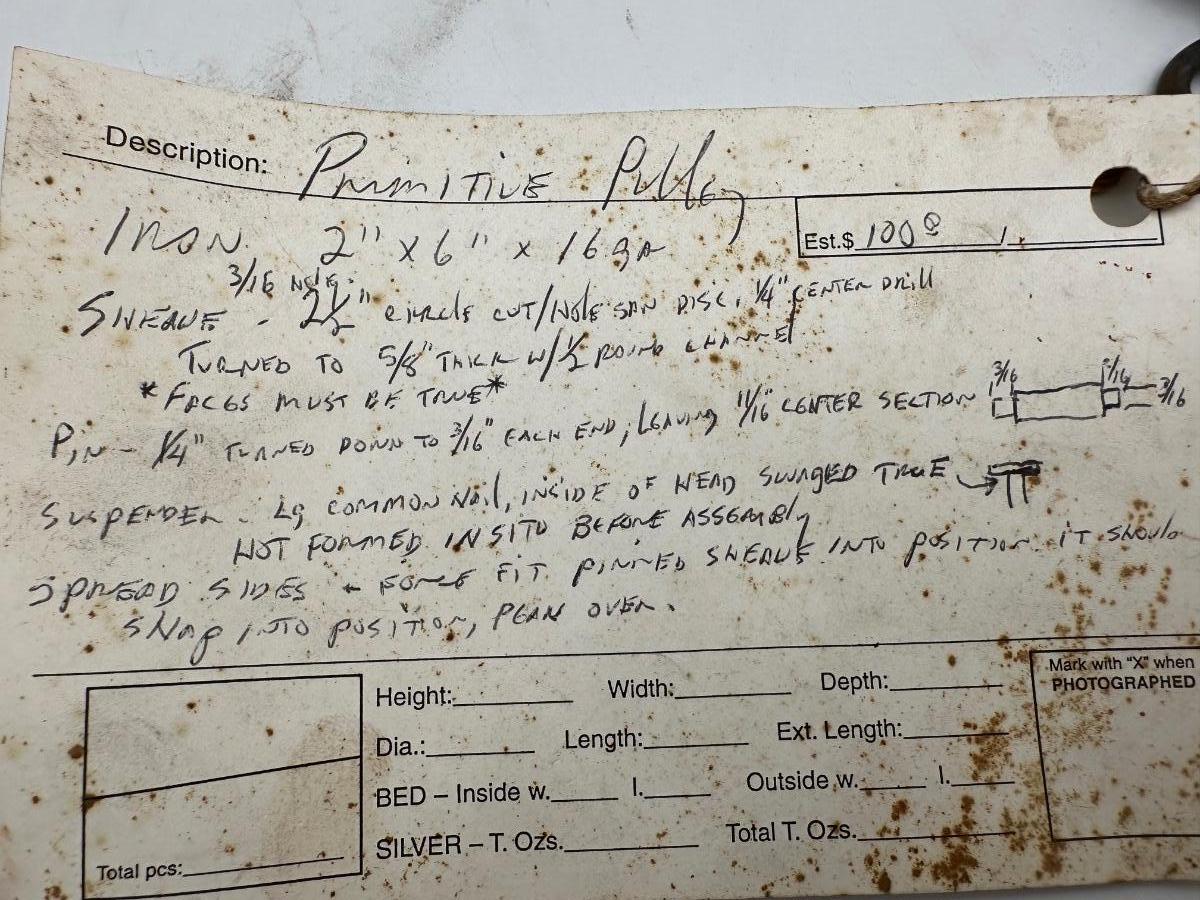 Description: Primitive Pulley
Iron 2" x 6" x 16 ga
Est.$ 100 /
3/16 Hole
Sheave - 2½" circle cut/hole saw disc, ¼" center drill
Turned to 5/8" thick w/½ round channel
*Faces must be true*
Pin - ¼" turned down to 3/16" each end, leaving 11/16" center section
3/16 3/16
Suspender - Lg common nail, inside of head swaged true
Hot formed in situ before assembly
Spread sides - force fit pinned sheave into position. It should
snap into position, pean over.
Height: Width: Depth:
Dia.: Length: Ext. Length:
BED – Inside w. l. Outside w. l.
SILVER – T. Ozs. Total T. Ozs.
Total pcs:
Mark with "X" when
PHOTOGRAPHED